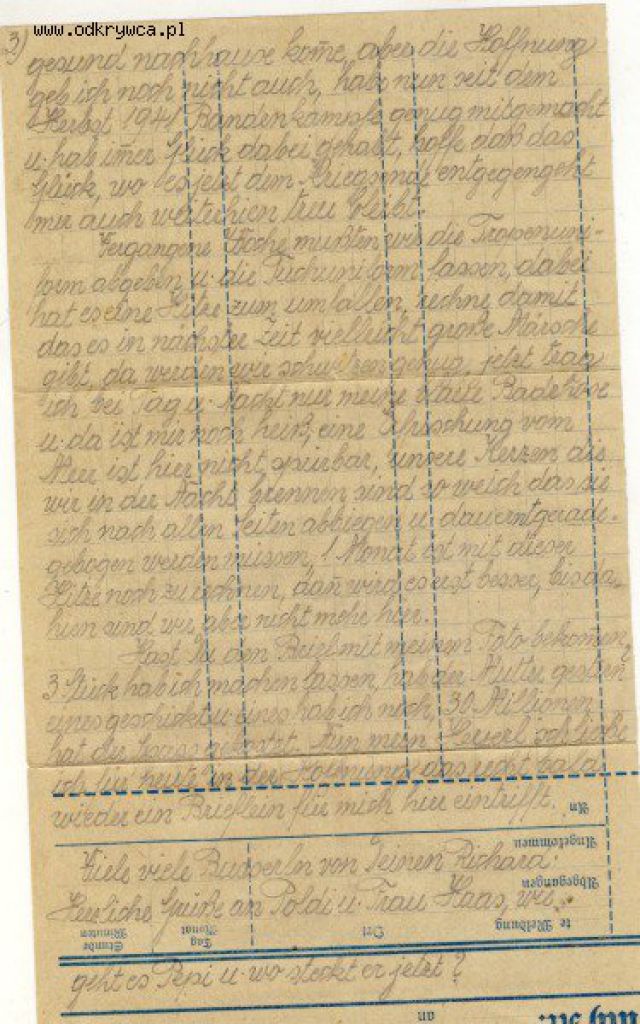 www.odkrywca.pl
3)
gesund nachhause kom̄e, aber die Hoffnung
geb ich noch nicht auch, habe nun seit dem
Herbst 1941 Bandenkämpfe genug mitgemacht
u. hab im̄er Glück dabei gehabt, hoffe daß das
Glück, wo es jetzt dem Kriegsende entgegengeht
mir auch weiterhien treu bleibt.
Vergangene Woche mußten wir die Tropenuni-
form abgeben u. die Tuchuniform fassen, dabei
hat es eine Hitze zum umfallen, rechne damit
das es in nächster Zeit vielleicht große Märsche
gibt, da werden wir schwitzen genug, jetzt trag
ich bei Tag u. Nacht nur meine Badehose
u. da ist mir noch heiß, eine Erfrischung vom
Meer ist hier nicht spürbar, unsere Kerzen die
wir in der Nacht brennen sind so weich das sie
sich nach allen Seiten abbiegen u. dauernt gerade-
gebogen werden müssen, 1 Monat ist mit dieser
Hitze noch zu rechnen, dan̄ wird es erst besser, bis da-
hien sind wir aber nicht mehr hier.
Hast Du den Brief mit meinem Foto bekommen,
3 Stück hab ich machen lassen, hab der Mutter gestern
eines geschickt u. eines hab ich noch, 30 Millionen
hat der gekostet. Nun mein schließe
ich für heute in der Hoffnung das recht bald
wieder ein Brieflein für mich hier eintrifft.
An
Angekommen
Viele viele Busserln von Deinen Richard.
Abgegangen
Herzliche Grüße an Poldi u. Frau Haas, wie
te Meldung
Ort
Tag
Monat
Stunde
Minuten
geht es Pepi u. wo steckt er jetzt?
an